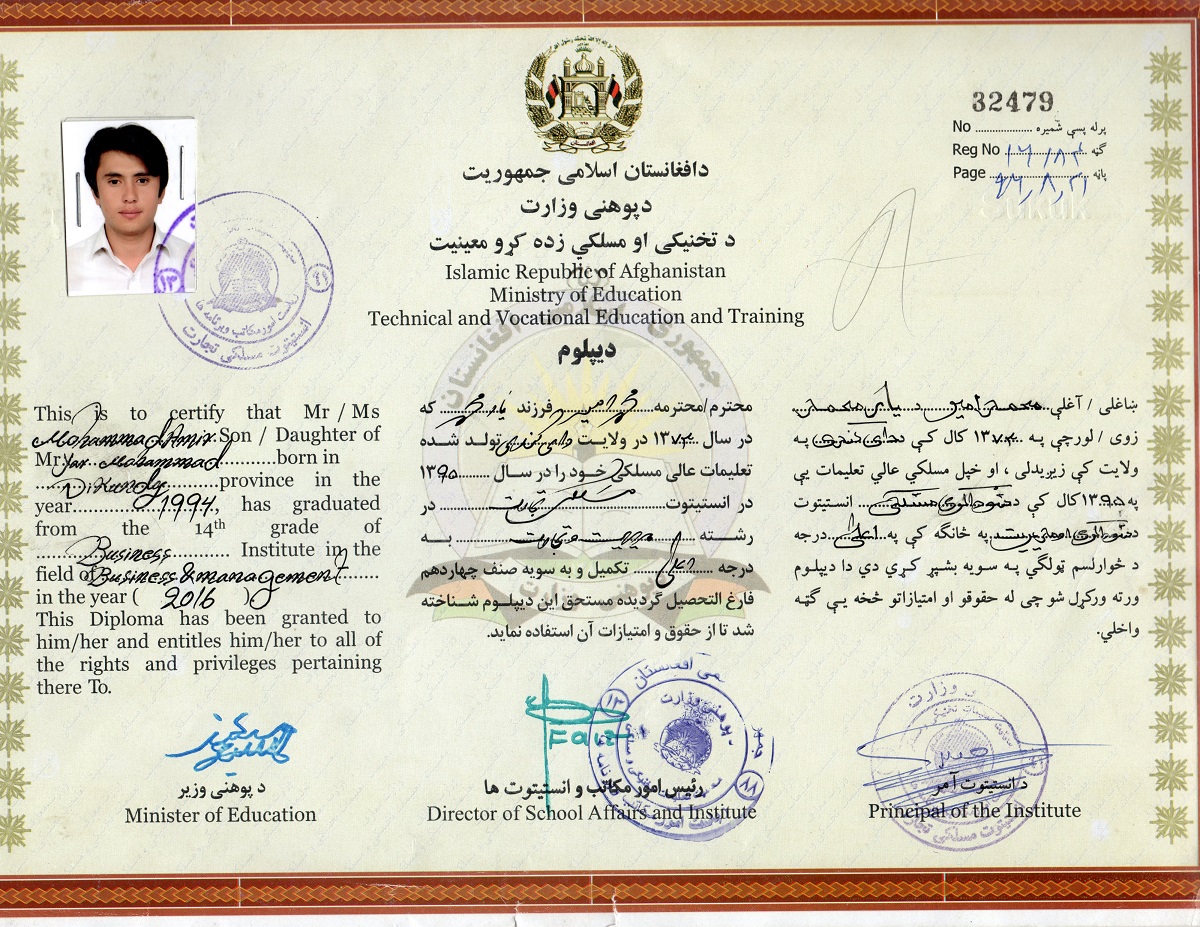 32479
No ........ پرله پسې شمېره
Reg No ۱۲/۸۴ ګڼه
Page ۹۶,۸,۲۱ پاڼه
دافغانستان اسلامی جمهوریت
دپوهنی وزارت
د تخنیکی او مسلکي زده کړو معینیت
Islamic Republic of Afghanistan
Ministry of Education
Technical and Vocational Education and Training
دیپلوم
This is to certify that Mr / Ms
Mohammad Amir Son / Daughter of
Mr. Yar Mohammad born in
D.Kundy province in the
year 1994, has graduated
from the 14th grade of
Business Institute in the
field of Business & management
in the year ( 2016 )
This Diploma has been granted to
him/her and entitles him/her to all of
the rights and privileges pertaining
there To.
محترم/محترمه فرزند یار محمد که
در سال ۱۳۷۳ در ولایت دای کندی تولد شده
تعلیمات عالی مسلکی خود را در سال ۱۳۹۵
در انستیتوت مسلکی تجارت در
رشته مدیریت و تجارت به
درجه اعلی تکمیل و به سویه صنف چهاردهم
فارغ التحصیل گردیده مستحق این دیپلوم شناخته
شد تا از حقوق و امتیازات آن استفاده نماید.
ښاغلی / آغلې د یار محمد
زوی / لورچې په ۱۳۷۳ کال کې د دای کندی په
ولایت کې زیږیدلی ، او خپل مسلکي عالي تعلیمات یې
په ۱۳۹۵ کال کې د انستیتوت
د په څانګه کې په اعلی درجه
د څوارلسم ټولګي په سویه بشپړ کړي دي دا دیپلوم
ورته ورکړل شو چې له حقوقو او امتیازاتو څخه یې ګټه
واخلي.
د پوهنی وزیر
Minister of Education
رئیس امور مکاتب و انستیتوت ها
Director of School Affairs and Institute
د انستیتوت آمر
Principal of the Institute